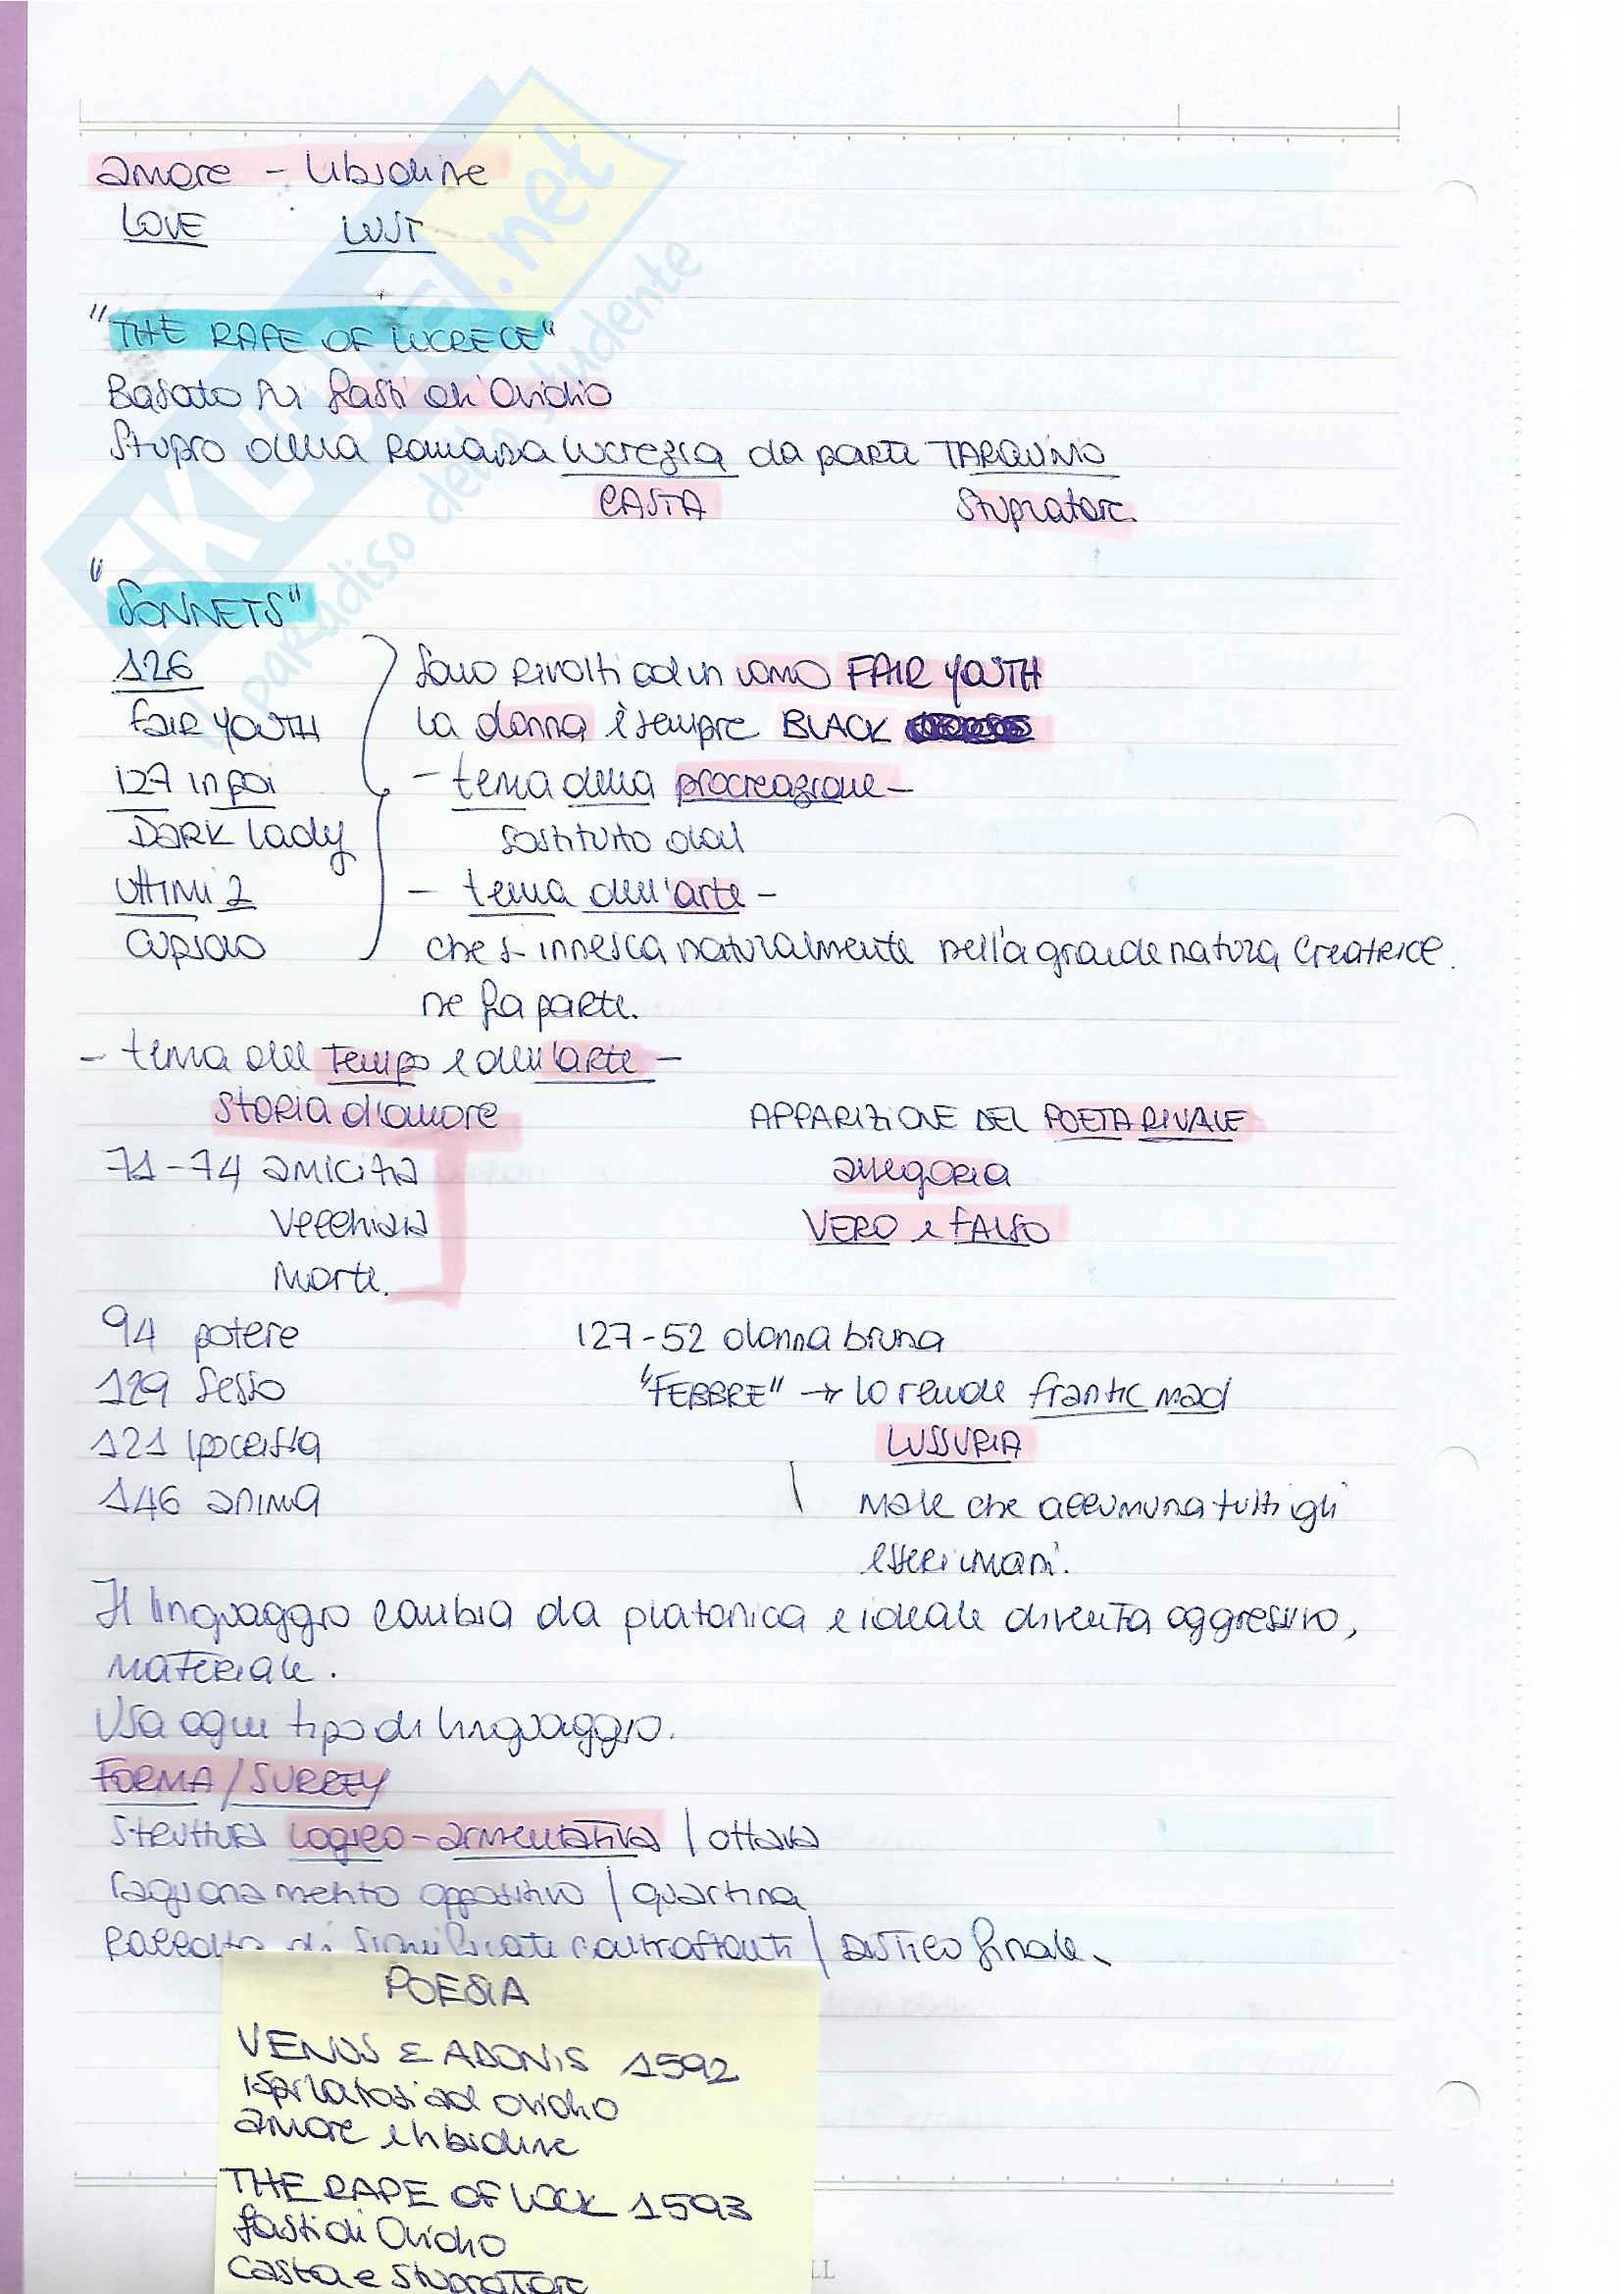 amore - libidine
LOVE LUST
"THE RAPE OF LUCRECE"
Basato su fasti di Ovidio
Stupro della Romana Lucrezia da parte TARQUINIO
CASTA Stupratore.
"SONNETS"
126 Sono rivolti ad un uomo FAIR YOUTH
FAIR YOUTH La donna è sempre BLACK
127 in poi - tema della procreazione -
DARK lady sostituito dal
Ultimi 2 - tema dell'arte -
Cupido che si innesca naturalmente nella grande natura creatrice.
ne fa parte.
- tema del tempo e dell'arte -
storia d'amore APPARIZIONE DEL POETA RIVALE
71-74 amicizia allegoria
Vecchiaia VERO e FALSO
Morte.
94 potere 127-52 donna bruna
129 sesso "FEBBRE" → lo rende frantic mad
121 ipocrisia LUSSURIA
146 anima male che accomuna tutti gli
esseri umani.
Il linguaggio cambia da platonica e ideale diventa aggressivo,
materiale.
Usa ogni tipo di linguaggio.
FORMA/SURREY
struttura logico-armentativa / ottava
ragionamento oppositivo / quartina
raccolta di significati contrastanti / distico finale.
POESIA
VENUS E ADONIS 1592
ispiratosi ad Ovidio
amore e libidine
THE RAPE OF LOCK 1593
fasti di Ovidio
Casta e stupratore
SKUOLA.net
il paradiso dello studente